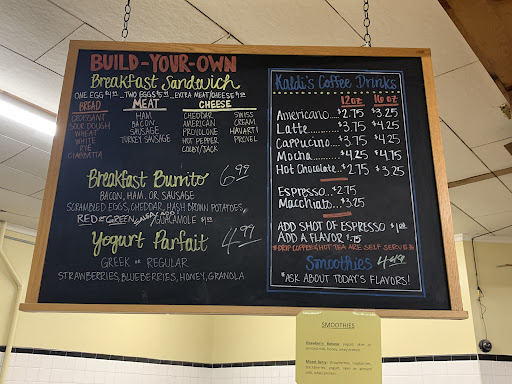 BUILD-YOUR-OWN
Breakfast Sandwich
ONE EGG $4.99 _TWO EGGS $5.99 _EXTRA MEAT/CHEESE $1.00
BREAD MEAT CHEESE
CROISSANT HAM CHEDDAR SWISS
SOUR DOUGH BACON AMERICAN CREAM
WHEAT SAUSAGE PROVOLONE HAVARTI
WHITE TURKEY SAUSAGE HOT PEPPER PROVEL
RYE COLBY/JACK
CIABATTA
Breakfast Burrito 6.99
BACON, HAM, OR SAUSAGE
SCRAMBLED EGGS, CHEDDAR, HASH BROWN POTATOES,
RED or GREEN SALSA, ADD GUACAMOLE
Yogurt Parfait 4.99
GREEK OR REGULAR
STRAWBERRIES, BLUEBERRIES, HONEY, GRANOLA
Kaldi's Coffee Drinks
12oz 16oz
Americano...$2.75 $3.25
Latte...........$3.75 $4.25
Cappucino...$3.75 $4.25
Mocha..........$4.25 $4.75
Hot Chocolate..$2.75 $3.25
Espresso..$2.75
Macchiato..$3.25
ADD SHOT OF ESPRESSO $1.00
ADD A FLAVOR $.75
*DRIP COFFEE & HOT TEA ARE SELF SERVE*
Smoothies 4.49
*ASK ABOUT TODAY'S FLAVORS!
SMOOTHIES